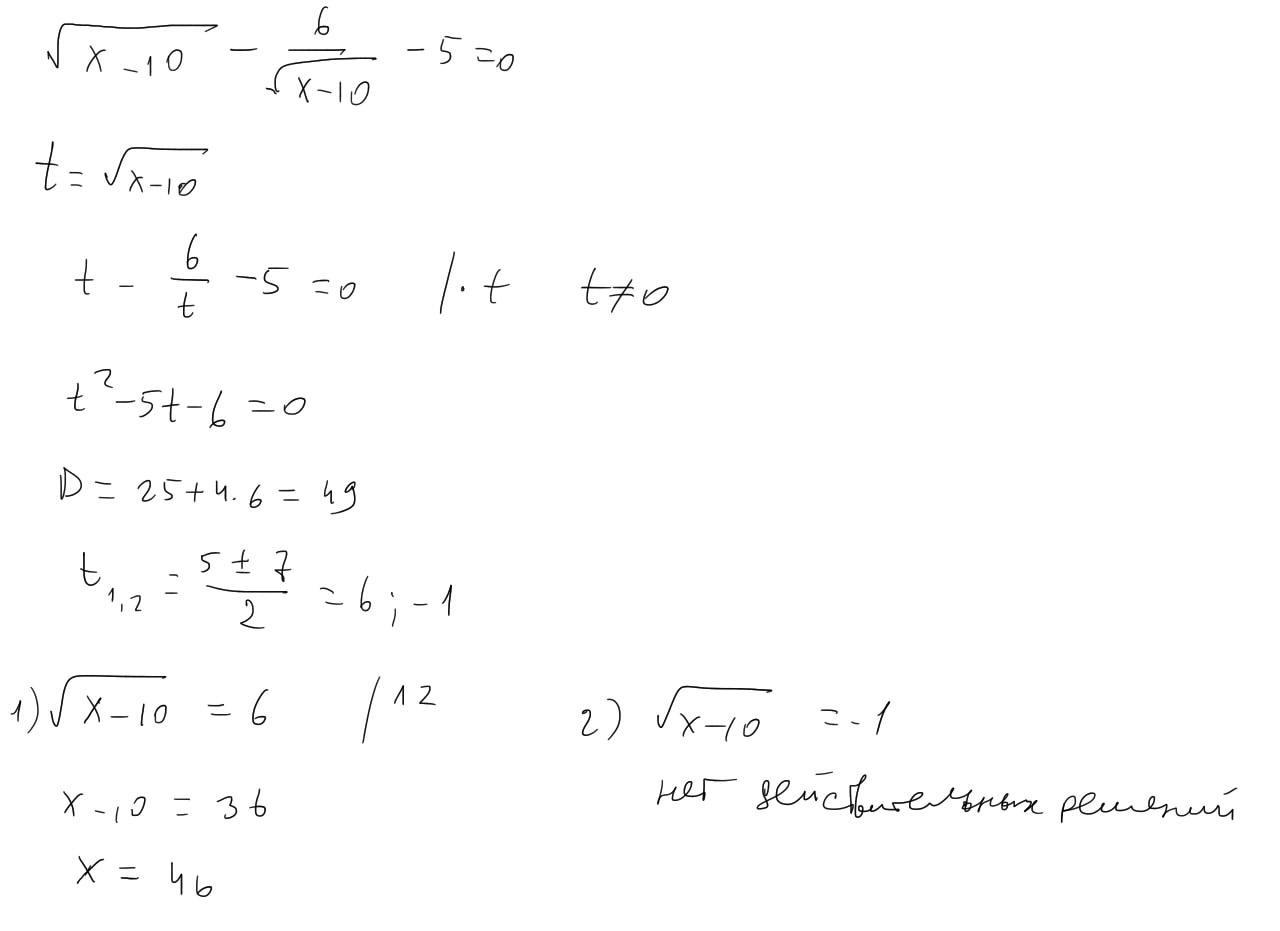 √(x-10) - 6/√(x-10) - 5 = 0
t = √(x-10)
t - 6/t - 5 = 0 /· t t ≠ 0
t² - 5t - 6 = 0
D = 25 + 4·6 = 49
t₁,₂ = (5 ± 7)/2 = 6 ; -1
1) √(x-10) = 6 /^2 2) √(x-10) = -1
нет действительных решений
x - 10 = 36
x = 46